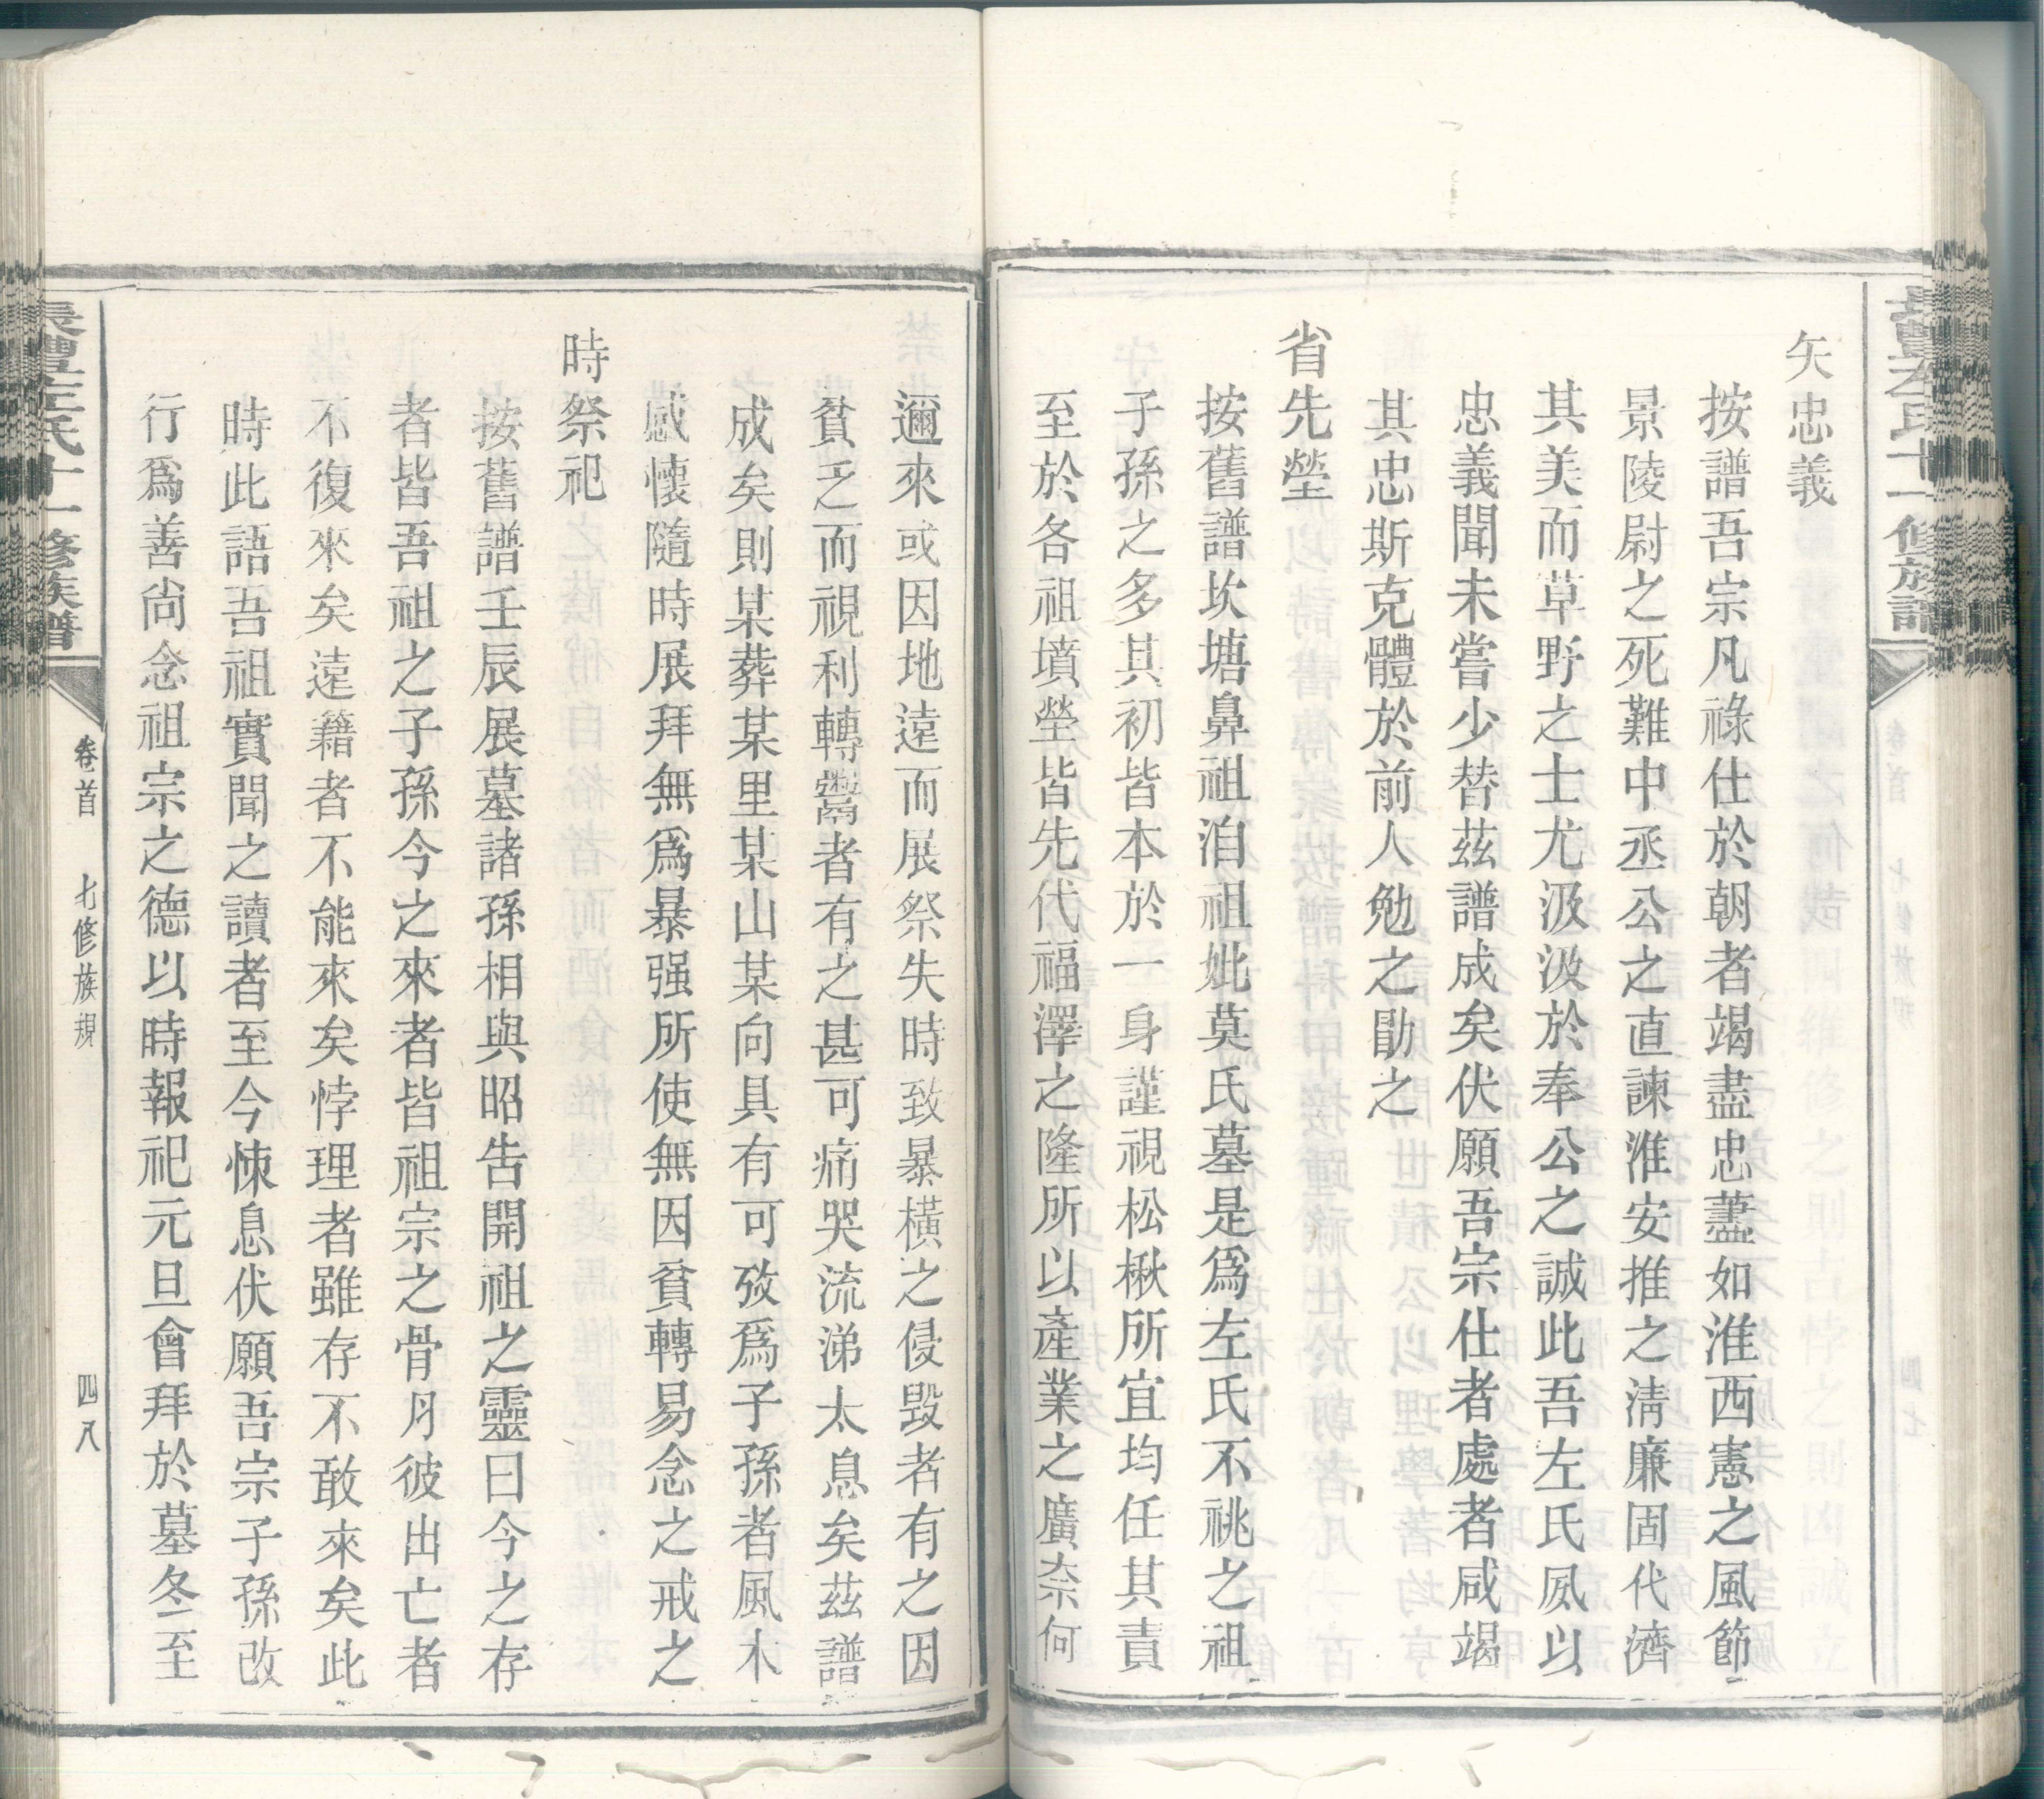 長豐左氏十一修族譜
矢忠義
按譜吾宗凡祿仕於朝者竭盡忠藎如淮西憲之風節
景陵尉之死難中丞公之直諫淮安推之淸廉固代濟
其美而草野之士尤汲汲於奉公之誠此吾左氏夙以
忠義聞未嘗少替茲譜成矣伏願吾宗仕者處者咸竭
其忠斯克體於前人勉之勖之
省先塋
按舊譜坎塘鼻祖洎祖妣莫氏墓是爲左氏不祧之祖
子孫之多其初皆本於一身謹視松楸所宜均任其責
至於各祖墳塋皆先代福澤之隆所以産業之廣柰何
邇來或因地遠而展祭失時致暴橫之侵毀者有之因
貧乏而視利轉鬻者有之甚可痛哭流涕太息矣茲譜
成矣則某葬某里某山某向具有可攷爲子孫者風木
感懷隨時展拜無爲暴强所使無因貧轉易念之戒之
時祭祀
按舊譜壬辰展墓諸孫相與昭告開祖之靈曰今之存
者皆吾祖之子孫今之來者皆祖宗之骨月彼出亡者
不復來矣遠籍者不能來矣悖理者雖存不敢來矣此
時此語吾祖實聞之讀者至今悚息伏願吾宗子孫改
行爲善尙念祖宗之德以時報祀元旦會拜於墓冬至
長豐左氏十一修族譜
卷首
七修族規
四八